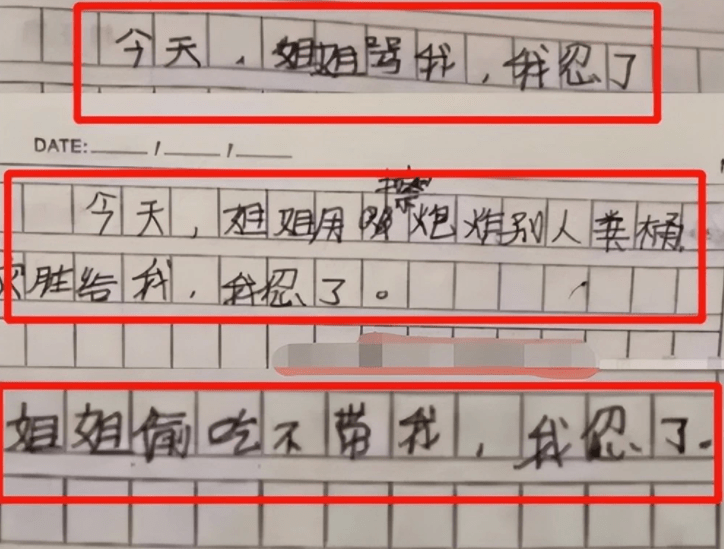 今天，姐姐骂我，我忍了
DATE: / /
今天，姐姐用炮炸别人粪桶
胜给我，我忍了。
姐姐偷吃不带我，我忍了.